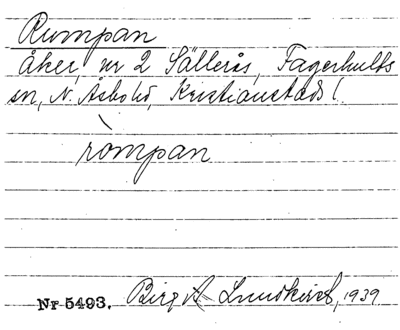 Rumpan
åker, nr 2 Sällerås, Fagerhults
sn, N. Åsbo hd, Kristianstads l.
ròmpan
Nr 5493. Birg A Lundkvist, 1939